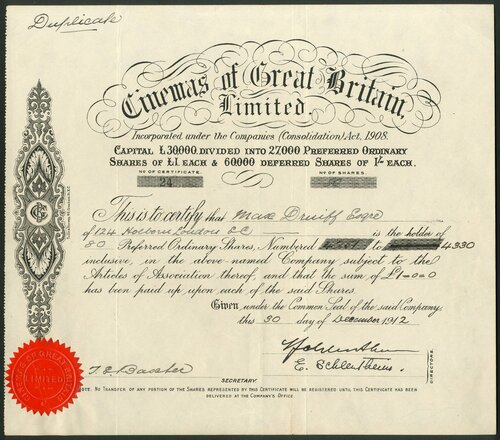 Duplicate
Cinemas of Great Britain,
Limited.
Incorporated under the Companies (Consolidation) Act, 1908.
CAPITAL £30,000, DIVIDED INTO 27,000 PREFERRED ORDINARY
SHARES OF £1. EACH & 60000 DEFERRED SHARES OF 1/- EACH.
NO OF CERTIFICATE. NO OF SHARES.
24
This is to certify that Max Esqre
of 124 Holborn London E C is the holder of
80 Preferred Ordinary Shares, Numbered to 4330
inclusive, in the above named Company subject to the
Articles of Association thereof, and that the sum of £1=0=0
has been paid up upon each of the said Shares.
Given, under the Common Seal of the said Company,
this 30 day of December 1912
DIRECTORS
SECRETARY.
NOTE. NO TRANSFER OF ANY PORTION OF THE SHARES REPRESENTED BY THIS CERTIFICATE WILL BE REGISTERED UNTIL THIS CERTIFICATE HAS BEEN
DELIVERED AT THE COMPANY'S OFFICE
LIMITED